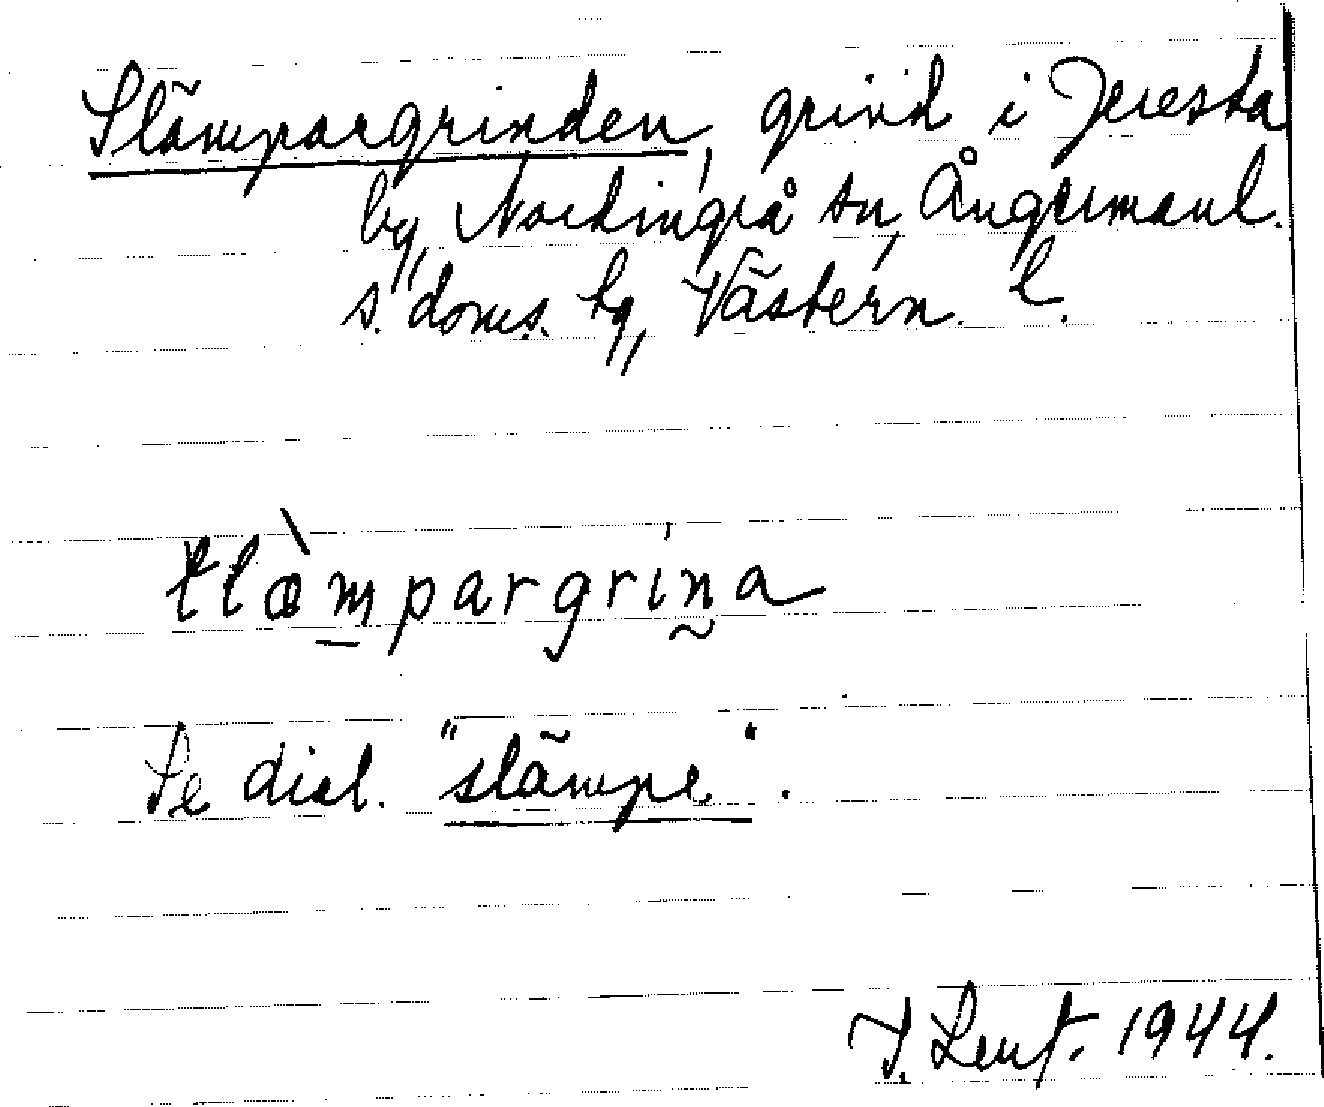 Slämpargrinden, grind i Jeresta
by, Nordingrå sn, Ångermanl.
s. doms. tg, Västern. l.
tlæ̀mpargrina
Se dial. "slämpe".
1944.